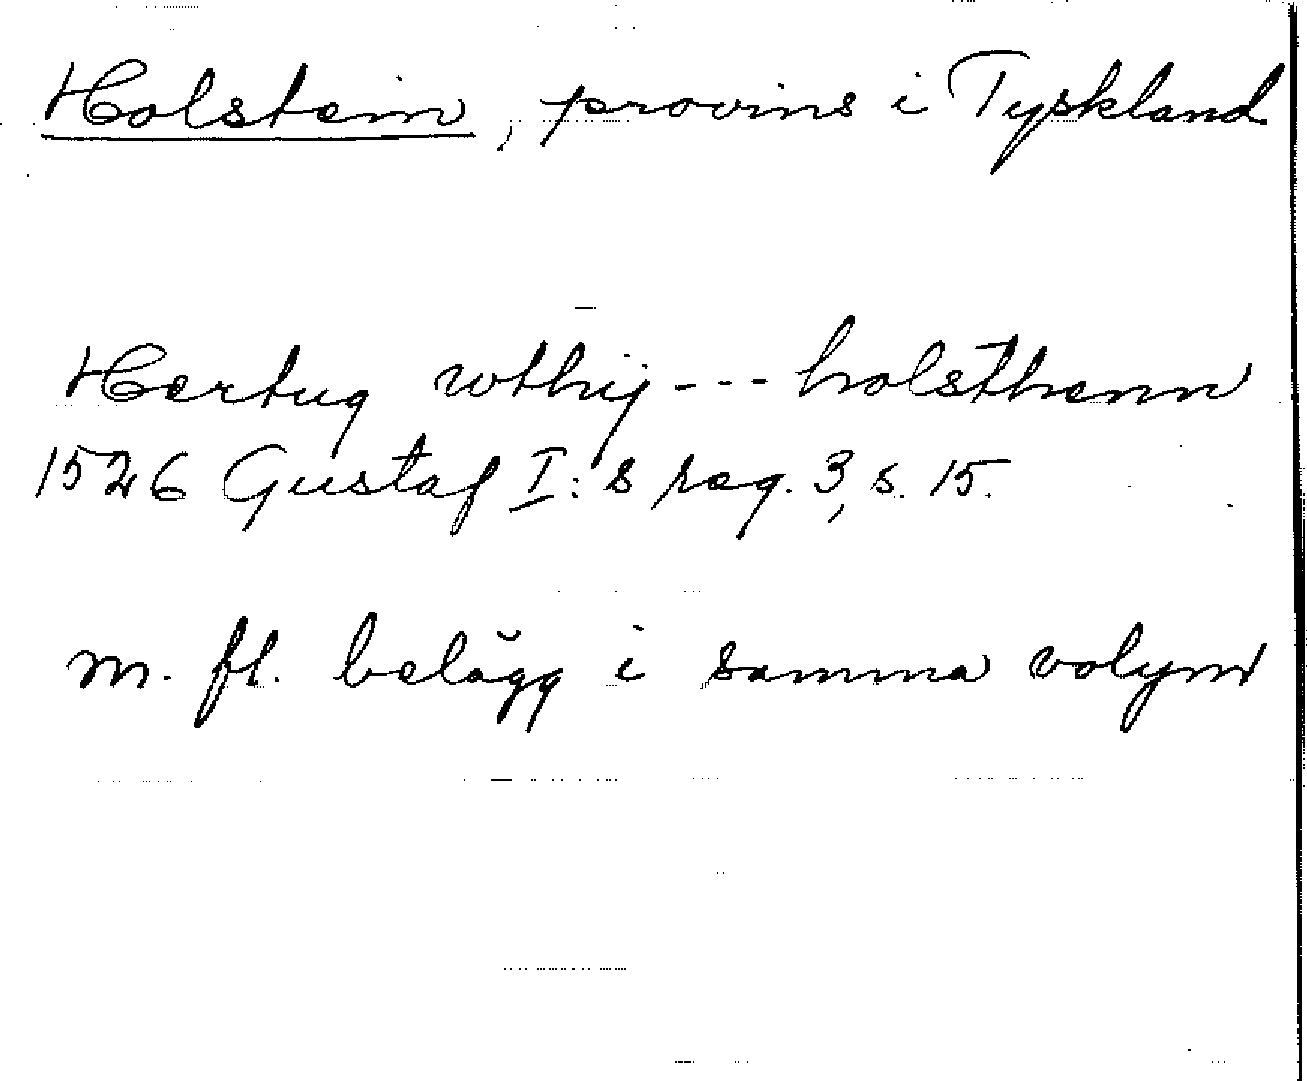 Holstein, provins i Tyskland
Hertug wthij --- holsthenn
1526 Gustaf I:s reg. 3, s. 15.
m. fl. belägg i samma volym